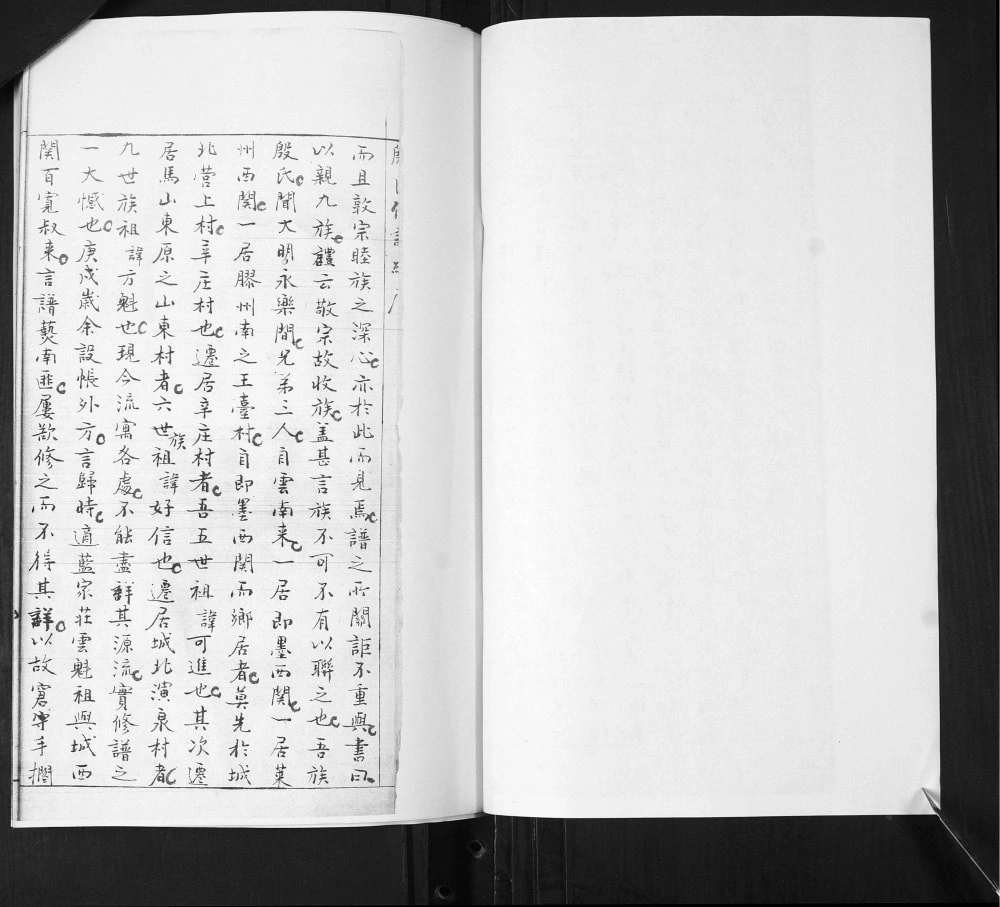 殷氏修譜
而且敦宗睦族之深心亦於此而見焉譜之所關詎不重與書曰
以親九族禮云敬宗故收族盖甚言族不可不有以聯之也吾族
殷氏聞大明永樂間兄弟三人自雲南来一居即墨西関一居萊
州西関一居膠州南之王臺村自即墨西関而鄉居者莫先於城
北營上村辛庄村也遷居辛庄村者吾五世祖諱可進也其次遷
居馬山東原之山東村者六世族祖諱好信也遷居城北演泉村者
九世族祖諱方魁也現今流寓各處不能盡詳其源流實修譜之
一大憾也庚戍歲余設帳外方言歸時適藍家莊雲魁祖與城西
関百寬叔来言譜藝南匪屢欲修之而不得其詳以故窘手擱